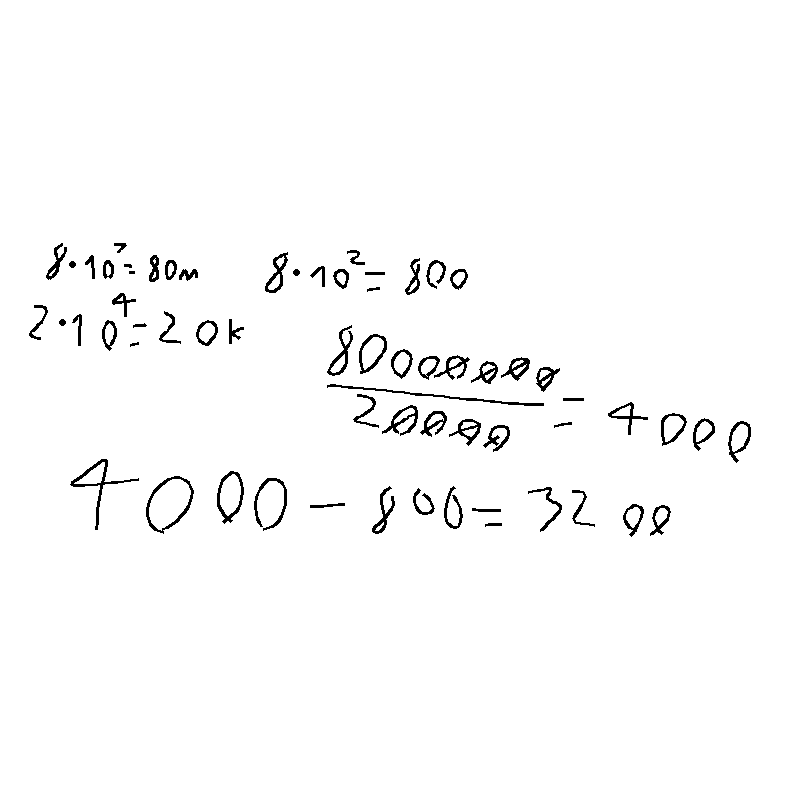 8·10⁷=80m 8·10²=800
2·10⁴=20k
80000000/20000=4000
4000-800=3200